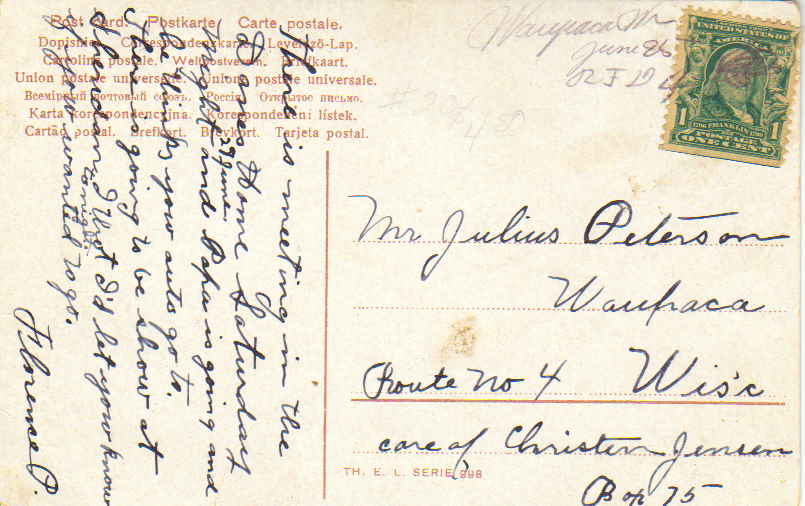 Post Card. Postkarte Carte postale.
Dopisnice Correspondenzkarte. Levelező-Lap.
Cartolina postale. Weltpostverein. Briefkaart.
Union postale universelle. Unione postale universale.
Всемірный почтовый союзъ. Россія. Открытое письмо.
Karta korespondencyjna. Korespondenční lístek.
Cartão postal. Brefkort. Brevkort. Tarjeta postal.
There is meeting in the
Danes Home Saturday
29 June.
night and Papa is going and
he thinks you auto go to.
There is going to be show at
Sheridan
tonight.
I'd let you know
if you wanted to go.
Florence P.
Waupaca
June 26
R F D 4
UNITED STATES OF
AMERICA
1706 FRANKLIN 1790
POSTAGE
1 ONE CENT 1
Mr Julius Peterson
Waupaca
Route No 4 Wis'c
care of Christen Jensen
Box 75
TH. E. L. SERIE 998